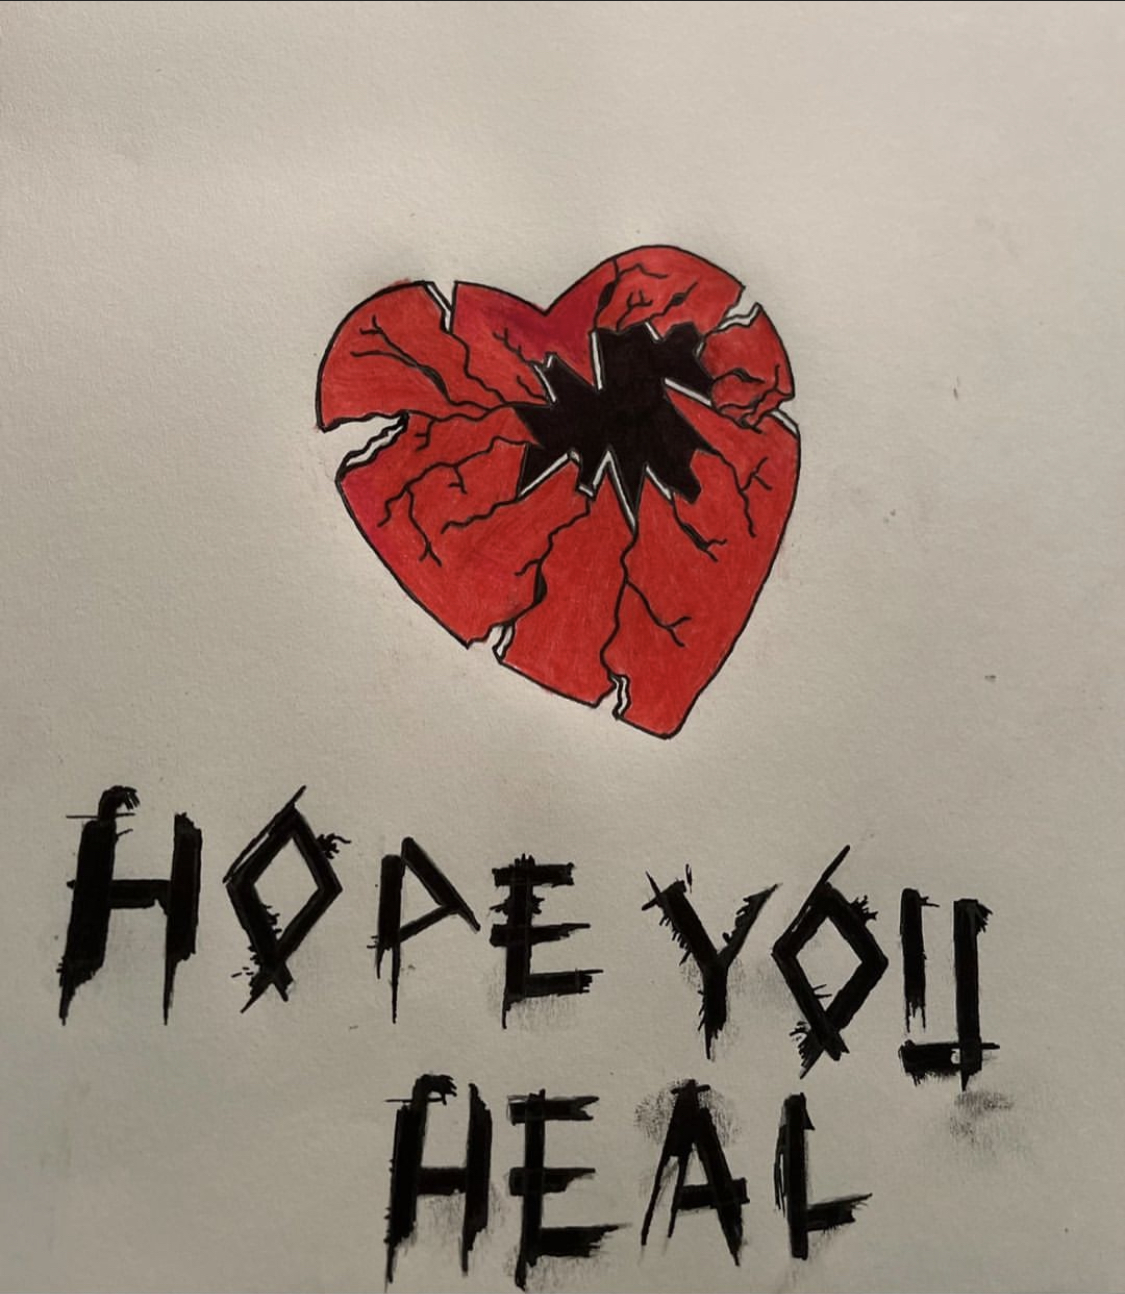 HOPE YOU
HEAL